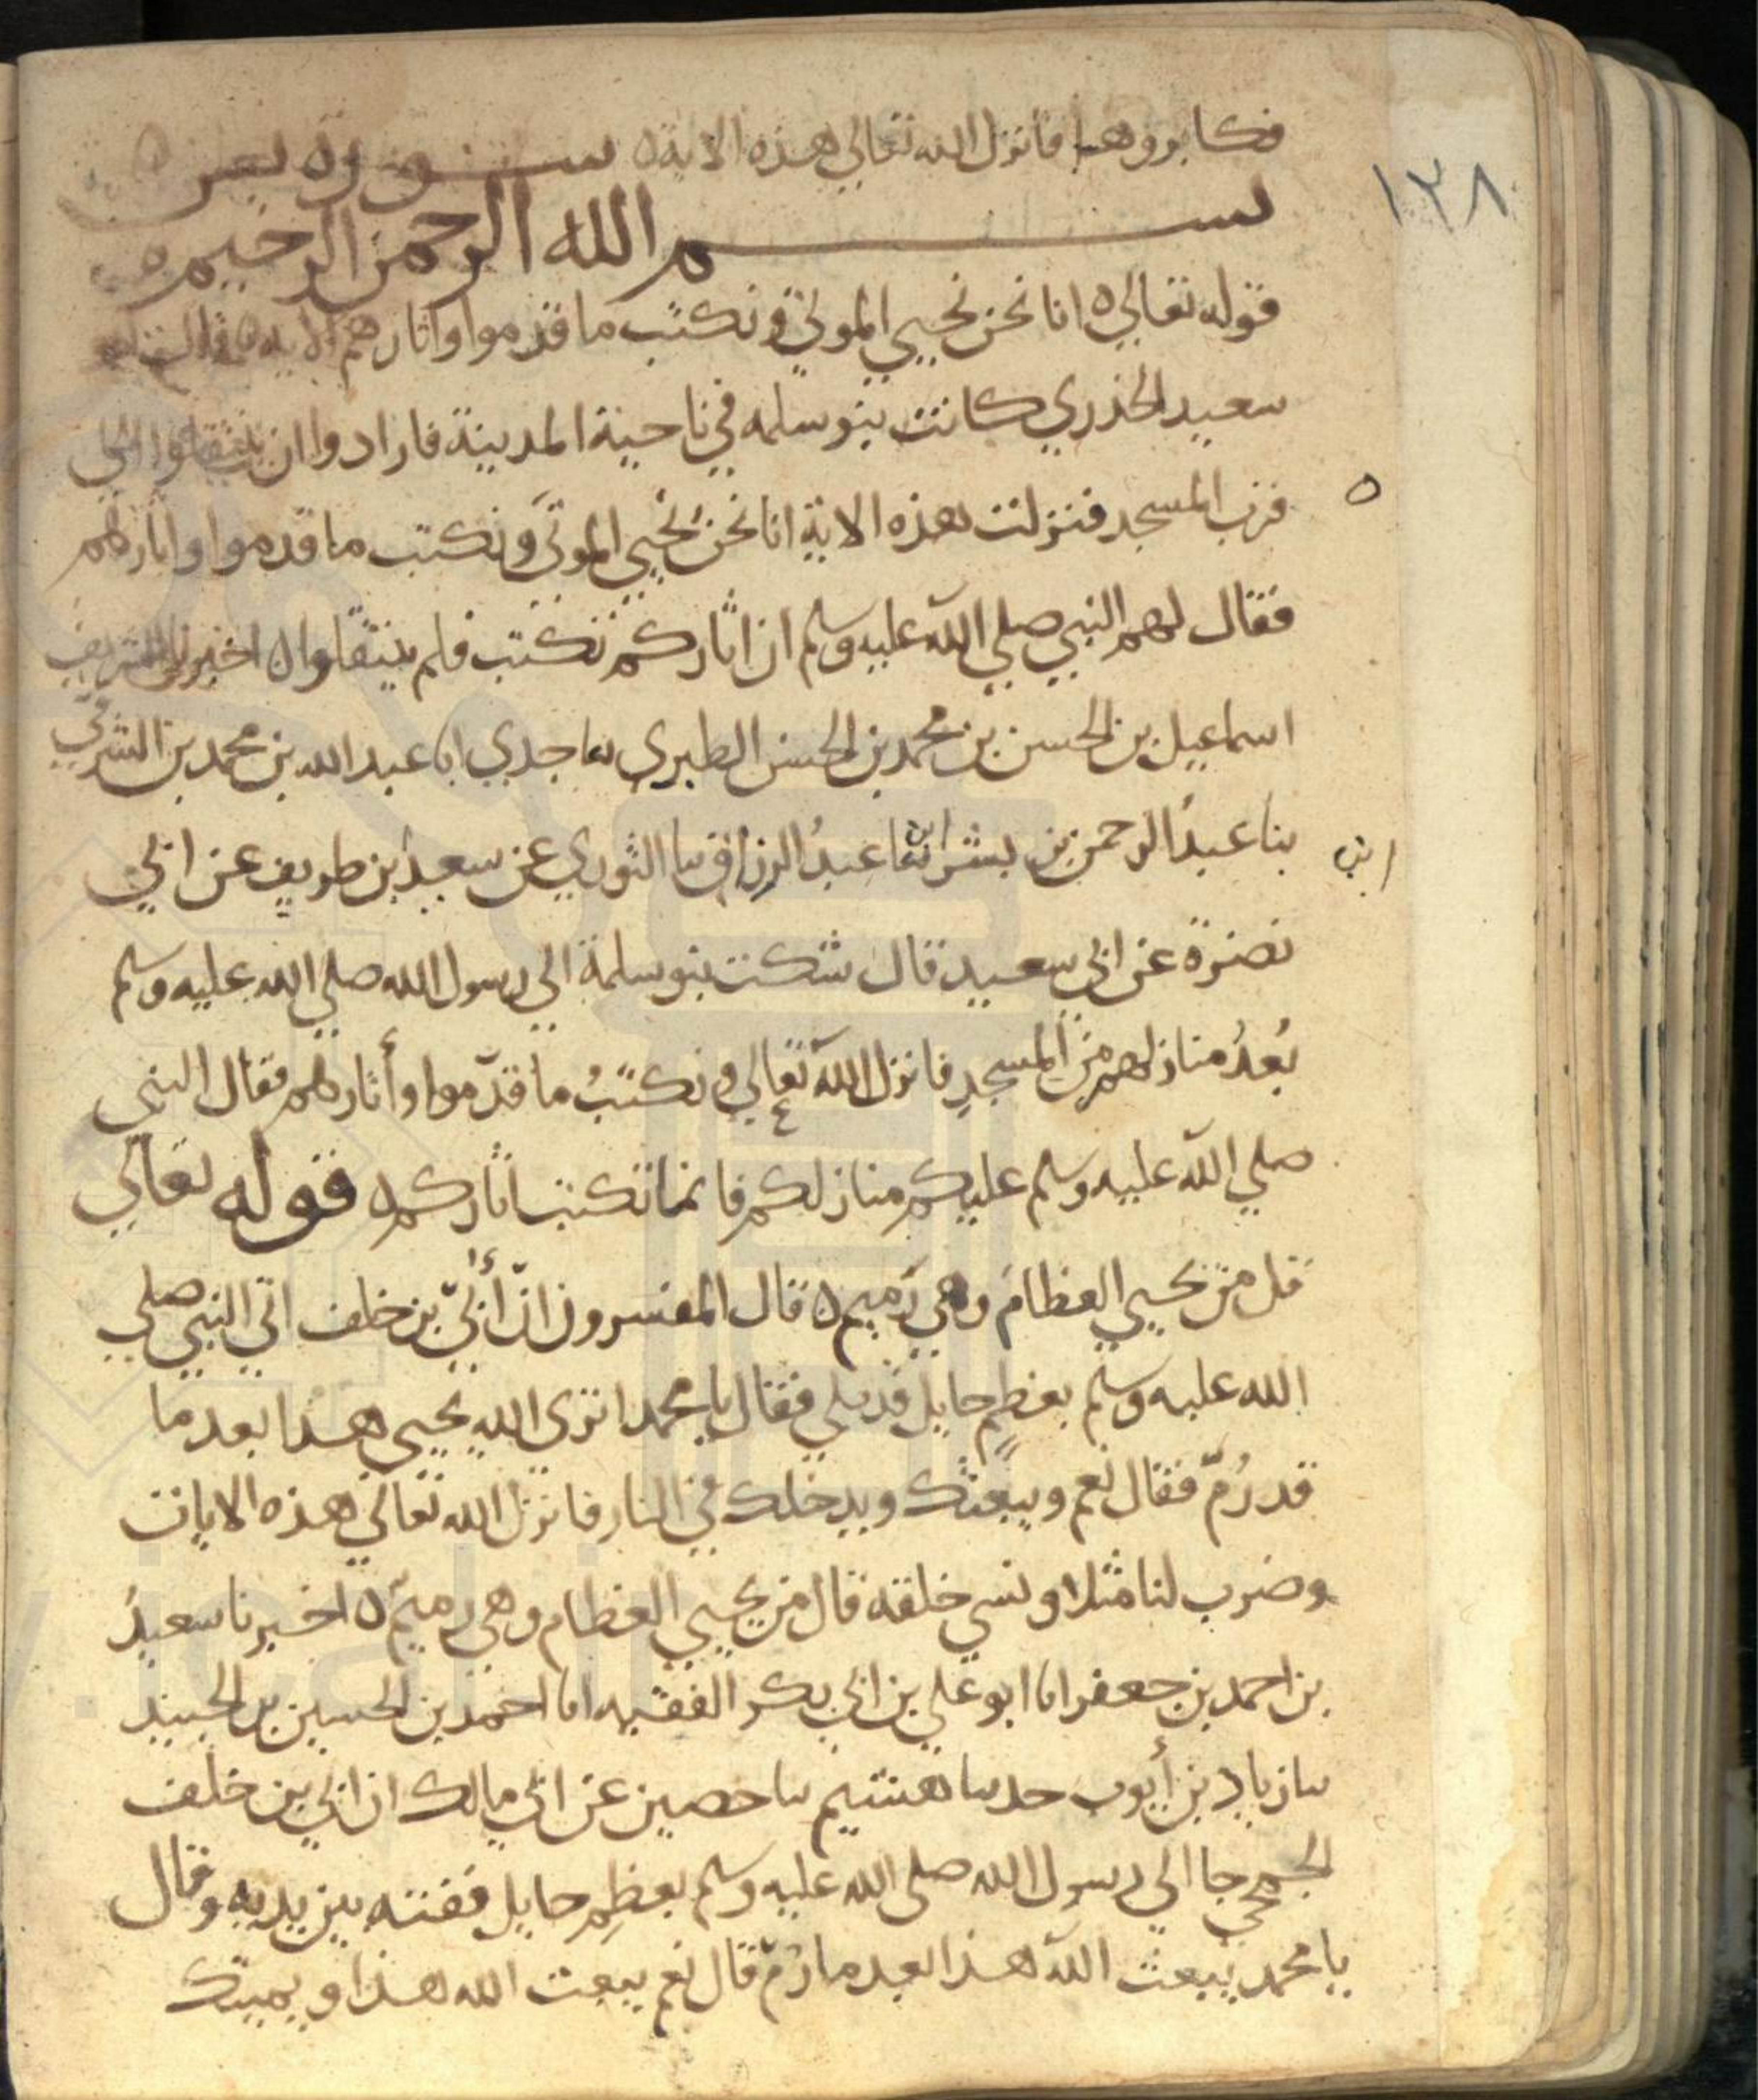 ١٣٨
فكابروها فانزل الله تعالى هذه الاية ه سورة يس ه
بسم الله الرحمن الرحيم ه
قوله تعالي ه انا نحن نحيي الموتى ونكتب ما قدموا واثارهم الايه ه قال ابو
سعيد الخذري كانت بنو سلمه في ناحية المدينة فارادوا ان ينتقلوا الي
قرب المسجد فنزلت هذه الاية انا نحن نحيي الموتى ونكتب ما قدموا واثارهم
ه
فقال لهم النبي صلي الله عليه وسلم ان اثاركم تكتب فلم ينتقلوا ه اخبرنا الشريف
اسماعيل بن الحسن بن محمد بن الحسن الطبري ثنا جدي ابا عبد الله بن محمد بن الشرقي
بنا عبدُ الرحمن بن بشر ابنا عبدُ الرزاق سا الثوري عن سعيد بن طريف عن ابي
ابن
نضرة عن ابي سعيد قال شكت بنو سلمة الي رسول الله صلي الله عليه وسلم
بُعدُ منازلهم من المسجد فانزل الله تعالي ونكتبُ ما قدّموا وأثارهم فقال النبي
صلي الله عليه وسلم عليكم منازلكم فانما تكتب اثاركم ه قوله تعالي
قل من يحيي العظامَ وهي رَميم ه قال المفسرون انّ أبيّ بن خلف اتي النبي صلي
الله عليه وسلم بعظمٍ حايل قد بلي فقال يا محمد اترى الله يحيى هذا بعد ما
قد رُمّ فقال نعم ويبعثك ويدخلك في النار فانزل الله تعالي هذه الايات
وضرب لنا مثلا ونسي خلقه قال من يحيي العظام وهي رميمٌ ه اخبرنا سعيدُ
بن احمد بن جعفر انا ابو علي بن ابي بكر الفقيه انا احمد بن الحسين بن الجنيد
سا زياد بن أيوب حدسا هشيم سا حصين عن ابي مالك ان ابي بن خلف
الجمحي جا الي رسول الله صلى الله عليه وسلم بعظمٍ حايل ففته بين يديه وقال
يا محمد يبعث الله هذا بعد ما رُمّ قال نعم يبعث الله هذا ويميتك